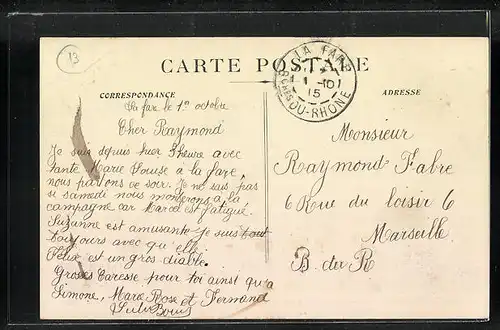 13
CARTE POSTALE
LA FARE
1 -10
15
BCHES DU-RHONE
CORRESPONDANCE
ADRESSE
La fare le 1er octobre
Cher Raymond
Je suis depuis hier 3 heure avec
tante Marie Louise à la fare,
nous partons ce soir. Je ne sais pas
si samedi nous monterons à la
campagne car est fatigué.
Suzanne est amusante je suis tout
toujours avec qu'elle
Félix est un gros diable.
Grosses Caresse pour toi ainsi qu'a
Simone, Marie Rose et Fernand
Monsieur
Raymond Fabre
6 Rue du loisir 6
Marseille
B. du R